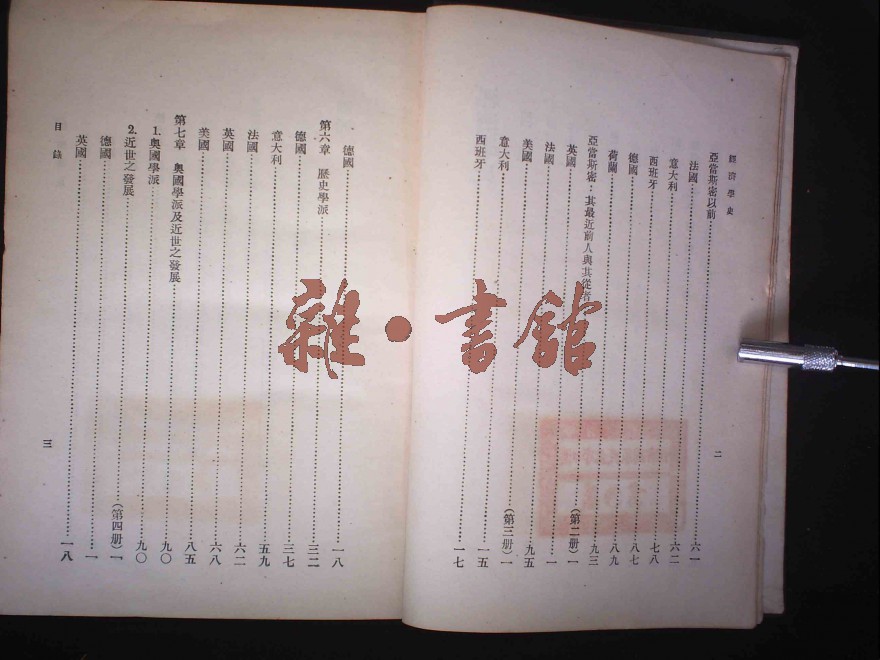 經濟學史
亞當斯密以前……六一
法國……六一
意大利……六二
西班牙……七八
德國……八七
荷蘭……八九
亞當斯密：其最近前人與其從……九三
英國……(第二册)一
法國……一
美國……九五
意大利……(第三册)一
西班牙……一五
二
德國……一七
第六章 歷史學派……一八
德國……三二
意大利……三七
法國……五九
英國……六二
美國……六八
第七章 奧國學派及近世之發展……八五
1. 奧國學派……九〇
2. 近世之發展……九〇
德國……(第四册)一
英國……一
一八
目錄
三
雜·書館